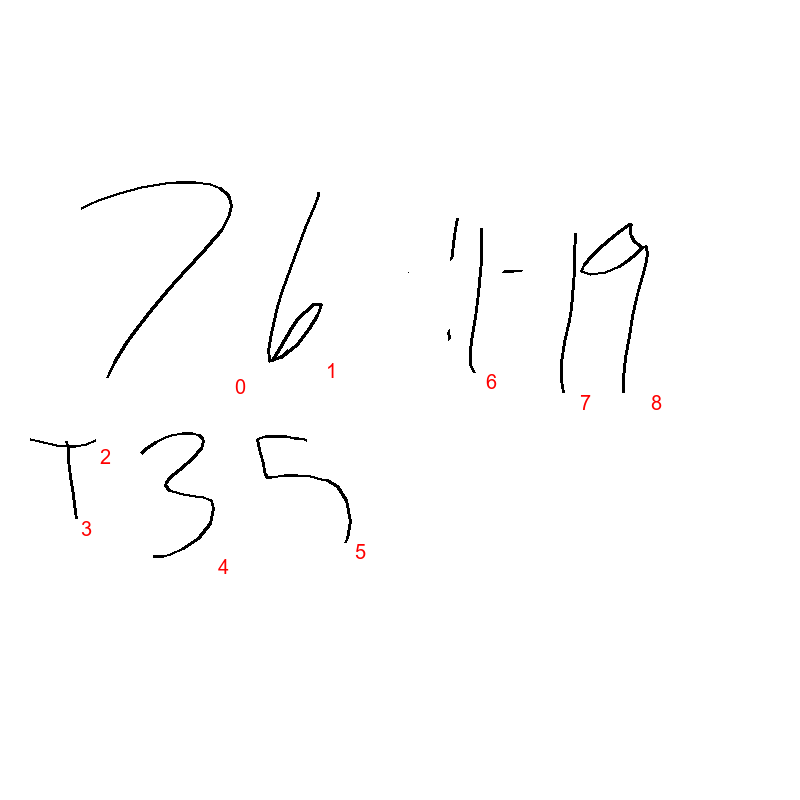 76 !1-19
0 1 6 7 8
T35
2 3 4 5